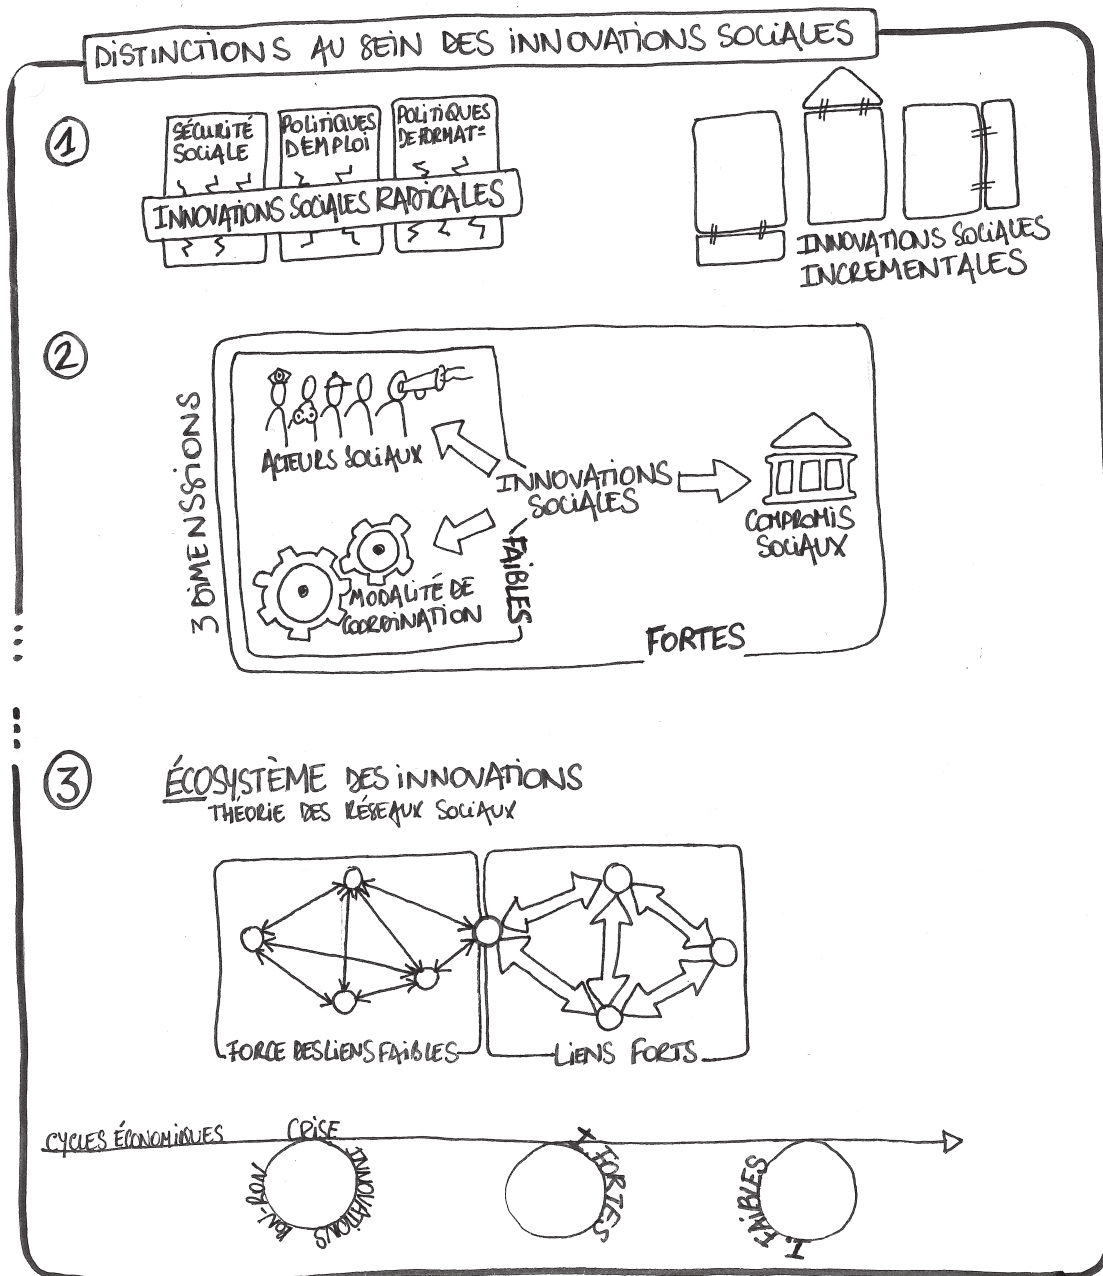 DISTINCTIONS AU SEIN DES INNOVATIONS SOCIALES
1
SÉCURITÉ
SOCIALE
POLITIQUES
D'EMPLOI
POLITIQUES
DE FORMAT=
INNOVATIONS SOCIALES RADICALES
INNOVATIONS SOCIALES
INCREMENTALES
2
3 DIMENSSIONS
ACTEURS SOCIAUX
INNOVATIONS
SOCIALES
COMPROMIS
SOCIAUX
MODALITÉ DE
COORDINATION
FAIBLES
FORTES
3
ÉCOSYSTÈME DES INNOVATIONS
THÉORIE DES RÉSEAUX SOCIAUX
FORCE DES LIENS FAIBLES
LIENS FORTS
CYCLES ÉCONOMIQUES
CRISE
INNOVATIONS
RON-RON
I. FORTES
I. FAIBLES